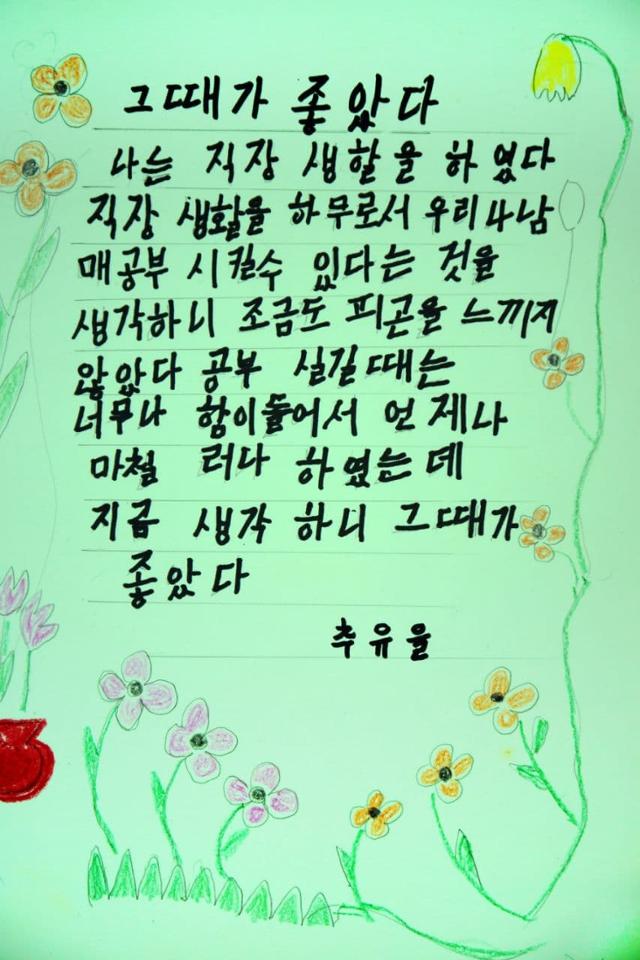 그때가 좋았다
나는 직장 생할을 하였다
직장 생활을 하무로서 우리나남
매공부 시킬수 있다는 것을
생각하니 조금도 피곤을 느끼지
않았다 공부 실길때는
너무나 함이들어서 언제나
마철 러다 하였는데
지금 생각하니 그때가
좋았다
추유을